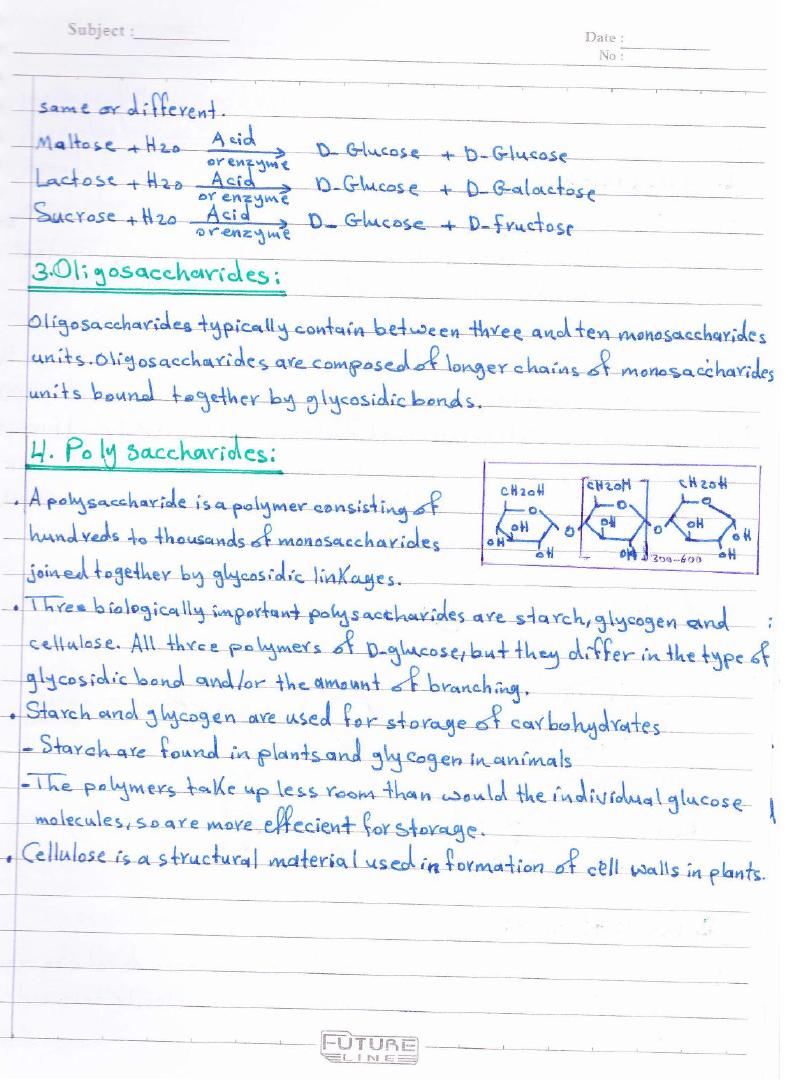 Subject :
Date :
No :
same or different.
Maltose + H2O Acid or enzyme D- Glucose + D-Glucose
Lactose + H2O Acid or enzyme D-Glucose + D-Galactose
Sucrose + H2O Acid or enzyme D- Glucose + D-fructose
3.Oligosaccharides:
Oligosaccharides typically contain between three and ten monosaccharides
units. Oligosaccharides are composed of longer chains of monosaccharides
units bound together by glycosidic bonds.
4. Poly saccharides:
. A polysaccharide is a polymer consisting of
hundreds to thousands of monosaccharides
joined together by glycosidic linkages.
CH2OH CH2OH CH2OH
O O O
OH OH OH
OH O O OH
OH OH OH
300-600
. Three biologically important polysaccharides are starch, glycogen and
cellulose. All three polymers of D-glucose, but they differ in the type of
glycosidic bond and/or the amount of branching.
. Starch and glycogen are used for storage of carbohydrates
- Starch are found in plants and glycogen in animals
- The polymers take up less room than would the individual glucose
molecules, so are more effecient for storage.
. Cellulose is a structural material used in formation of cell walls in plants.
FUTURE
LINE